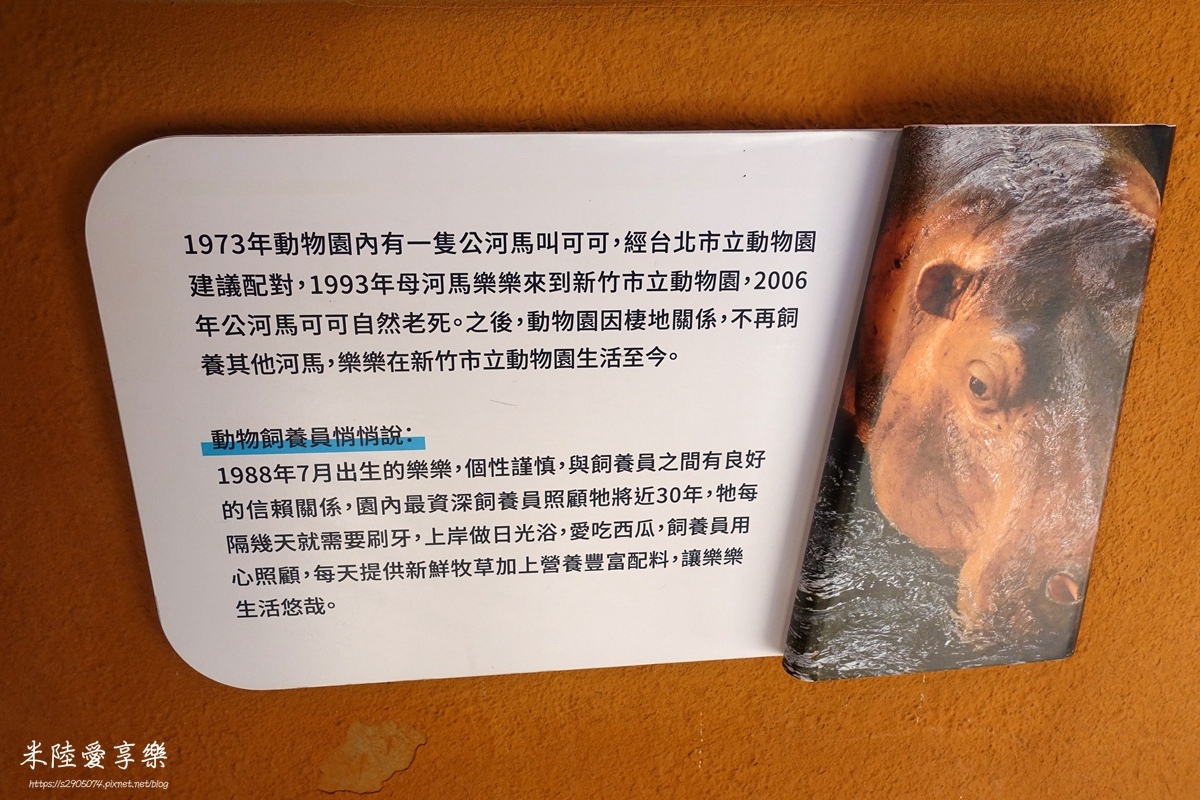 1973年動物園內有一隻公河馬叫可可，經台北市立動物園
建議配對，1993年母河馬樂樂來到新竹市立動物園，2006
年公河馬可可自然老死。之後，動物園因棲地關係，不再飼
養其他河馬，樂樂在新竹市立動物園生活至今。
動物飼養員悄悄說：
1988年7月出生的樂樂，個性謹慎，與飼養員之間有良好
的信賴關係，園內最資深飼養員照顧牠將近30年，牠每
隔幾天就需要刷牙，上岸做日光浴，愛吃西瓜，飼養員用
心照顧，每天提供新鮮牧草加上營養豐富配料，讓樂樂
生活悠哉。
米陸愛享樂
https://s2905074.pixnet.net/blog